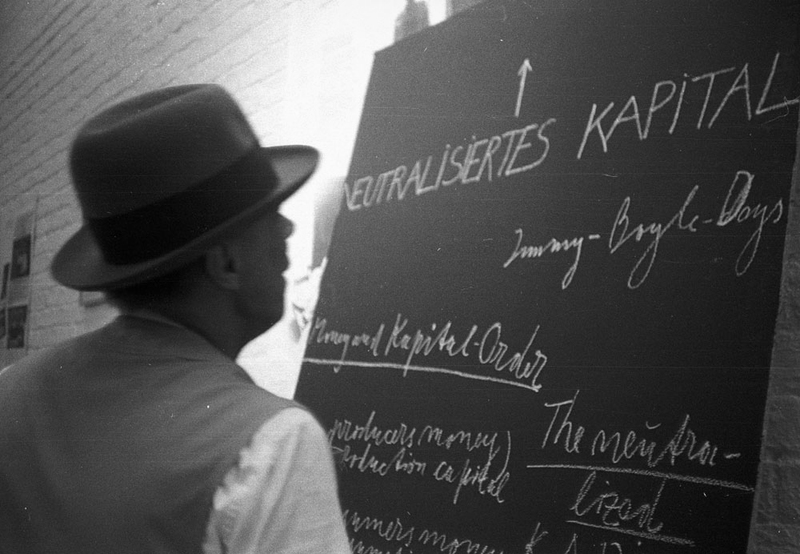 NEUTRALISIERTES KAPITAL
Jimmy-Boyle-Days
Money and Kapital-Order
producers money)
oduction capital
The neutra-
lized
umers money